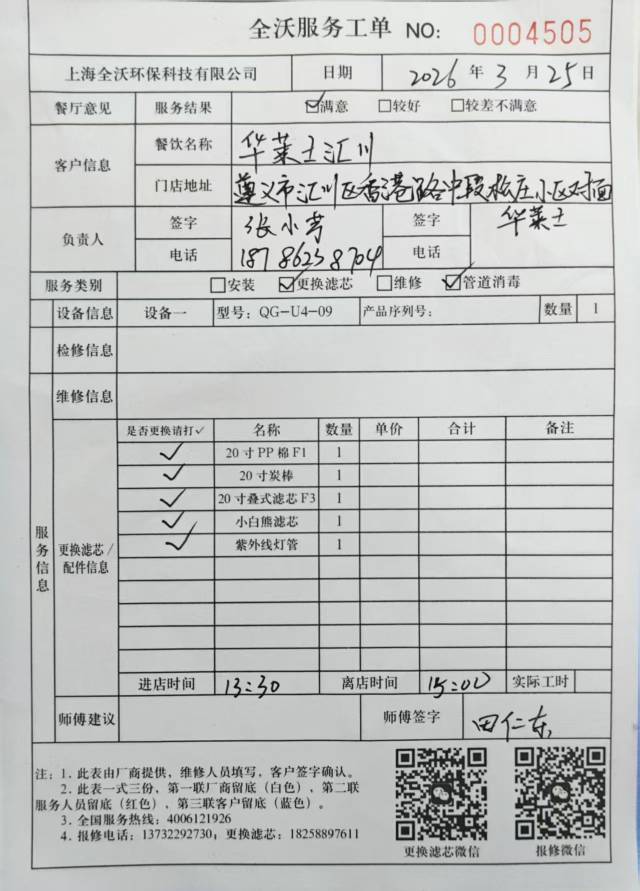 全沃服务工单 NO: 0004505
上海全沃环保科技有限公司 日期 2026 年 3 月 25 日
餐厅意见 服务结果 ☑满意 □较好 □较差不满意
客户信息 餐饮名称 华莱士汇川
门店地址 遵义市汇川区香港路中段松庄小区对面
负责人 签字 张小芳 签字 华莱士
电话 18786258704 电话
服务类别 □安装 ☑更换滤芯 □维修 ☑管道消毒
设备信息 设备一 型号: QG-U4-09 产品序列号: 数量 1
检修信息
维修信息
服务信息 更换滤芯/配件信息
是否更换请打✓ 名称 数量 单价 合计 备注
✓ 20寸PP棉F1 1
✓ 20寸炭棒 1
✓ 20寸叠式滤芯F3 1
✓ 小白熊滤芯 1
✓ 紫外线灯管 1
进店时间 13:30 离店时间 15:00 实际工时
师傅建议 师傅签字 田仁东
注: 1. 此表由厂商提供, 维修人员填写, 客户签字确认。
2. 此表一式三份, 第一联厂商留底 (白色), 第二联
服务人员留底 (红色), 第三联客户留底 (蓝色)。
3. 全国服务热线: 4006121926
4. 报修电话: 13732292730; 更换滤芯: 18258897611
更换滤芯微信 报修微信